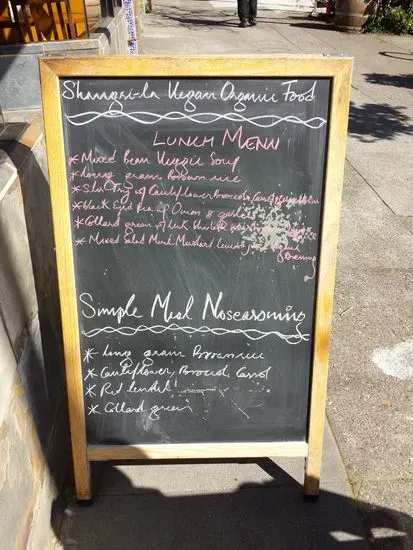 Shangri-la Vegan Organic Food
LUNCH MENU
* Mixed Bean Veggie Soup
* long gram Brown rice
* Stir Fry of Cauliflower Broccoli, Carrot
* Black Eyed Pea of Onion & garlic
* Collard green of
* Mixed Salad Mint Mustard lemon
Dressing
Simple Meal Noseasoning
* long gram Brown rice
* Cauliflower, Brocol, Carrot
* Red lentil
* Collard green